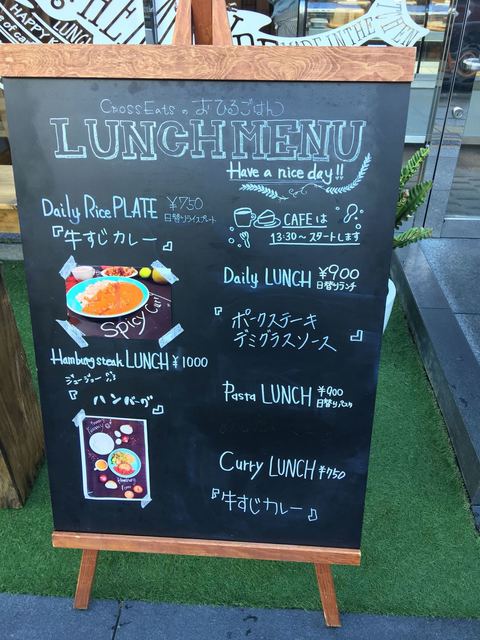 HAPPY
LUNCH
IN THE
CrossEats の おひるごはん
LUNCH MENU
Have a nice day!!
Daily Rice PLATE ¥750
日替りライスプレート
『牛すじカレー』
Spicy
Hamburg steak LUNCH ¥1000
『ハンバーグ』
CAFEは
13:30～スタートします
Daily LUNCH ¥900
日替りランチ
『ポークステーキ
デミグラスソース』
Pasta LUNCH ¥900
日替りパスタ
Curry LUNCH ¥750
『牛すじカレー』